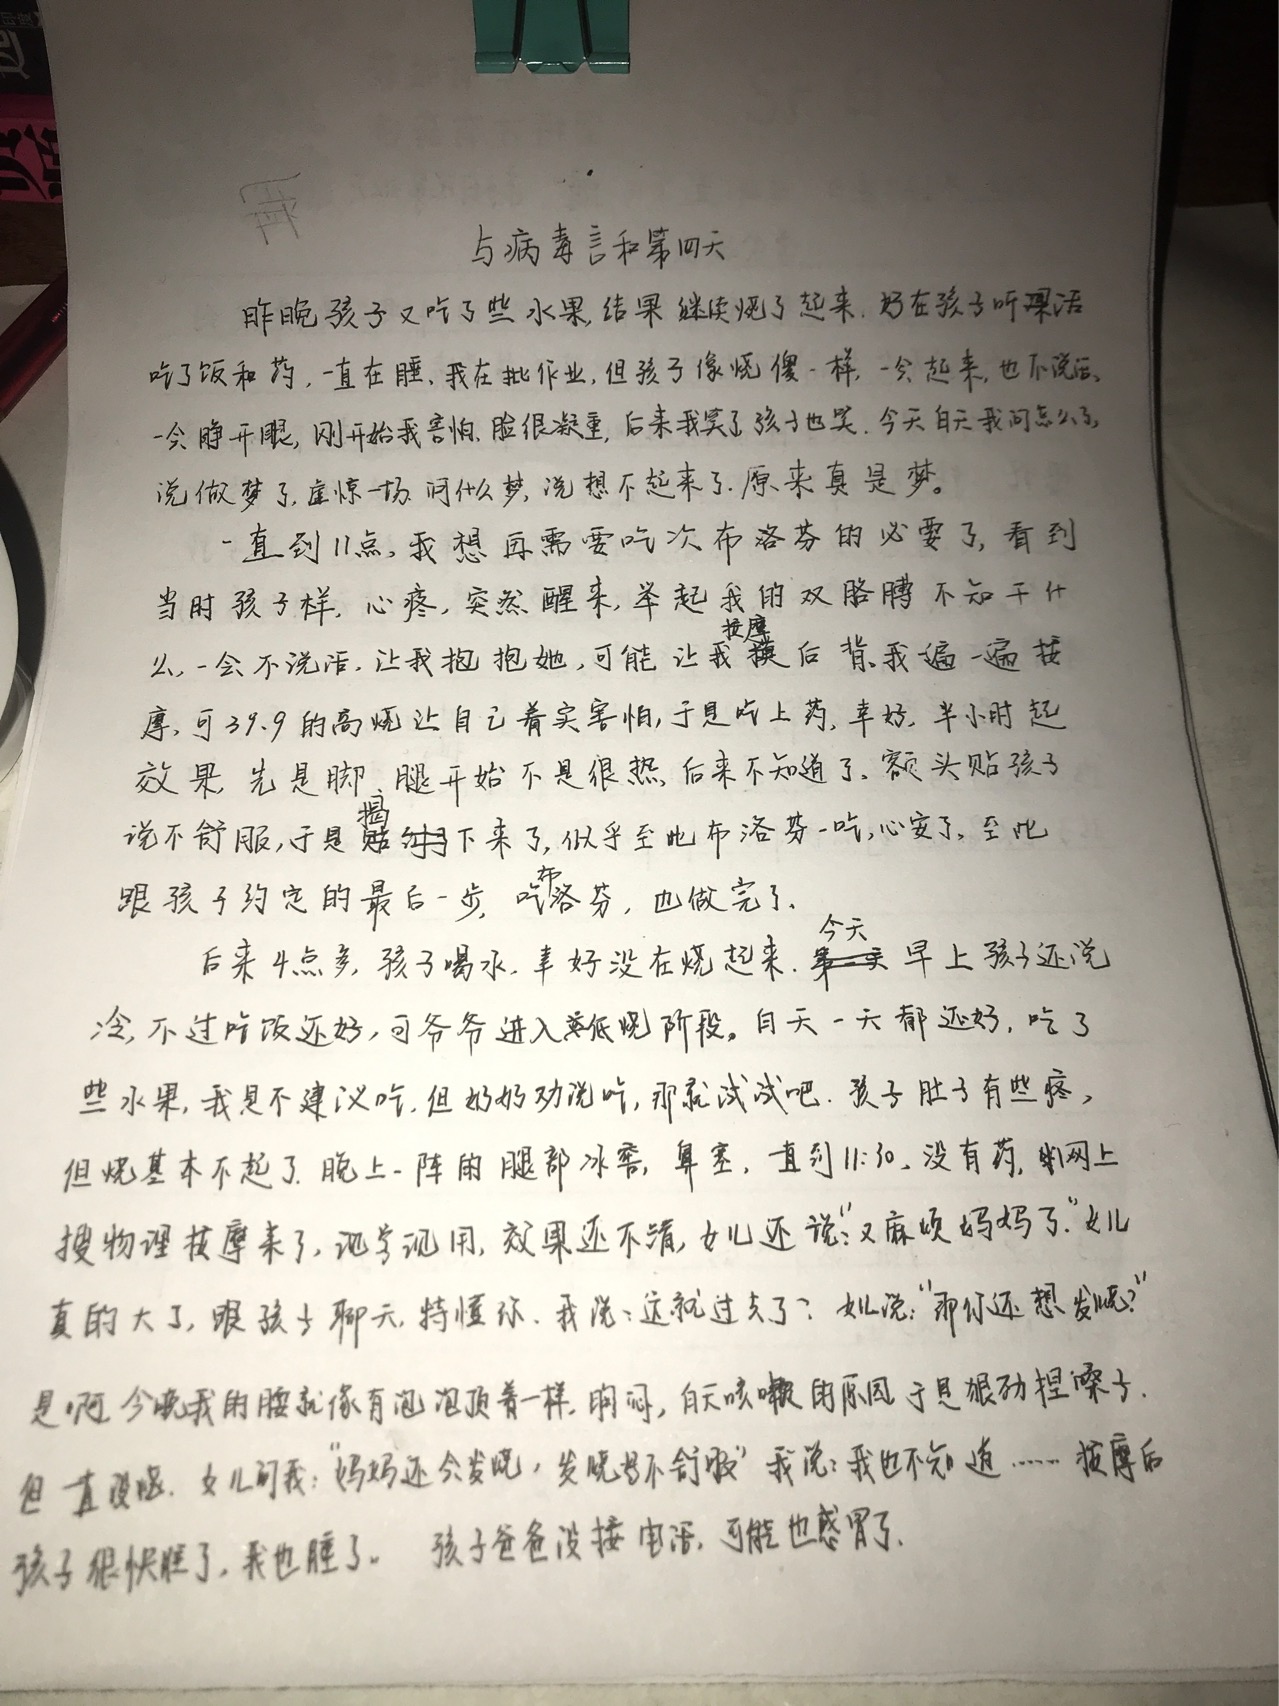 与病毒言和第四天
昨晚孩子又吃了些水果,结果继续烧了起来.好在孩子听课活
吃了饭和药,一直在睡、我在批作业,但孩子像烧傻一样,一会起来,也不说话、
一会睁开眼,刚开始我害怕、脸很凝重,后来我笑了孩子也笑.今天白天我问怎么了,
说做梦了,虚惊一场.问什么梦,说想不起来了.原来真是梦。
一直到11点,我想再需要吃次布洛芬的必要了,看到
当时孩子样,心疼,突然醒来,举起我的双胳膊不知干什
么,一会不说话,让我抱抱她,可能让我按摩后背、我遍一遍按
摩,可39.9的高烧让自己着实害怕,于是吃上药,幸好,半小时起
效果,先是脚、腿开始不是很热,后来不知道了、额头贴孩子
说不舒服,于是揭下来了,似乎至此布洛芬一吃,心安了,至此
跟孩子约定的最后一步,吃布洛芬,也做完了、
后来4点多,孩子喝水.幸好没在烧起来.今天早上孩子还说
冷,不过吃饭还好,可爷爷进入低烧阶段。白天一天都还好,吃了
些水果,我是不建议吃,但奶奶劝说吃,那就试试吧.孩子肚子有些疼,
但烧基本不起了.晚上一阵的腿部冰凉,鼻塞,一直到11:30、没有药,网上
搜物理按摩来了,现学现用,效果还不错,女儿还说:“又麻烦妈妈了.”女儿
真的大了,跟孩子聊天,特懂你.我说:这就过去了?女儿说:“那你还想发烧?”
是啊,今晚我的腰就像有泡泡顶着一样,胸闷,白天咳嗽的原因于是狠劲捏嗓子.
但一直没.女儿问我:“妈妈还会发烧,发烧好不舒服”我说:我也不知道……按摩后
孩子很快睡了,我也睡了。 孩子爸爸没接电话,可能也感冒了.